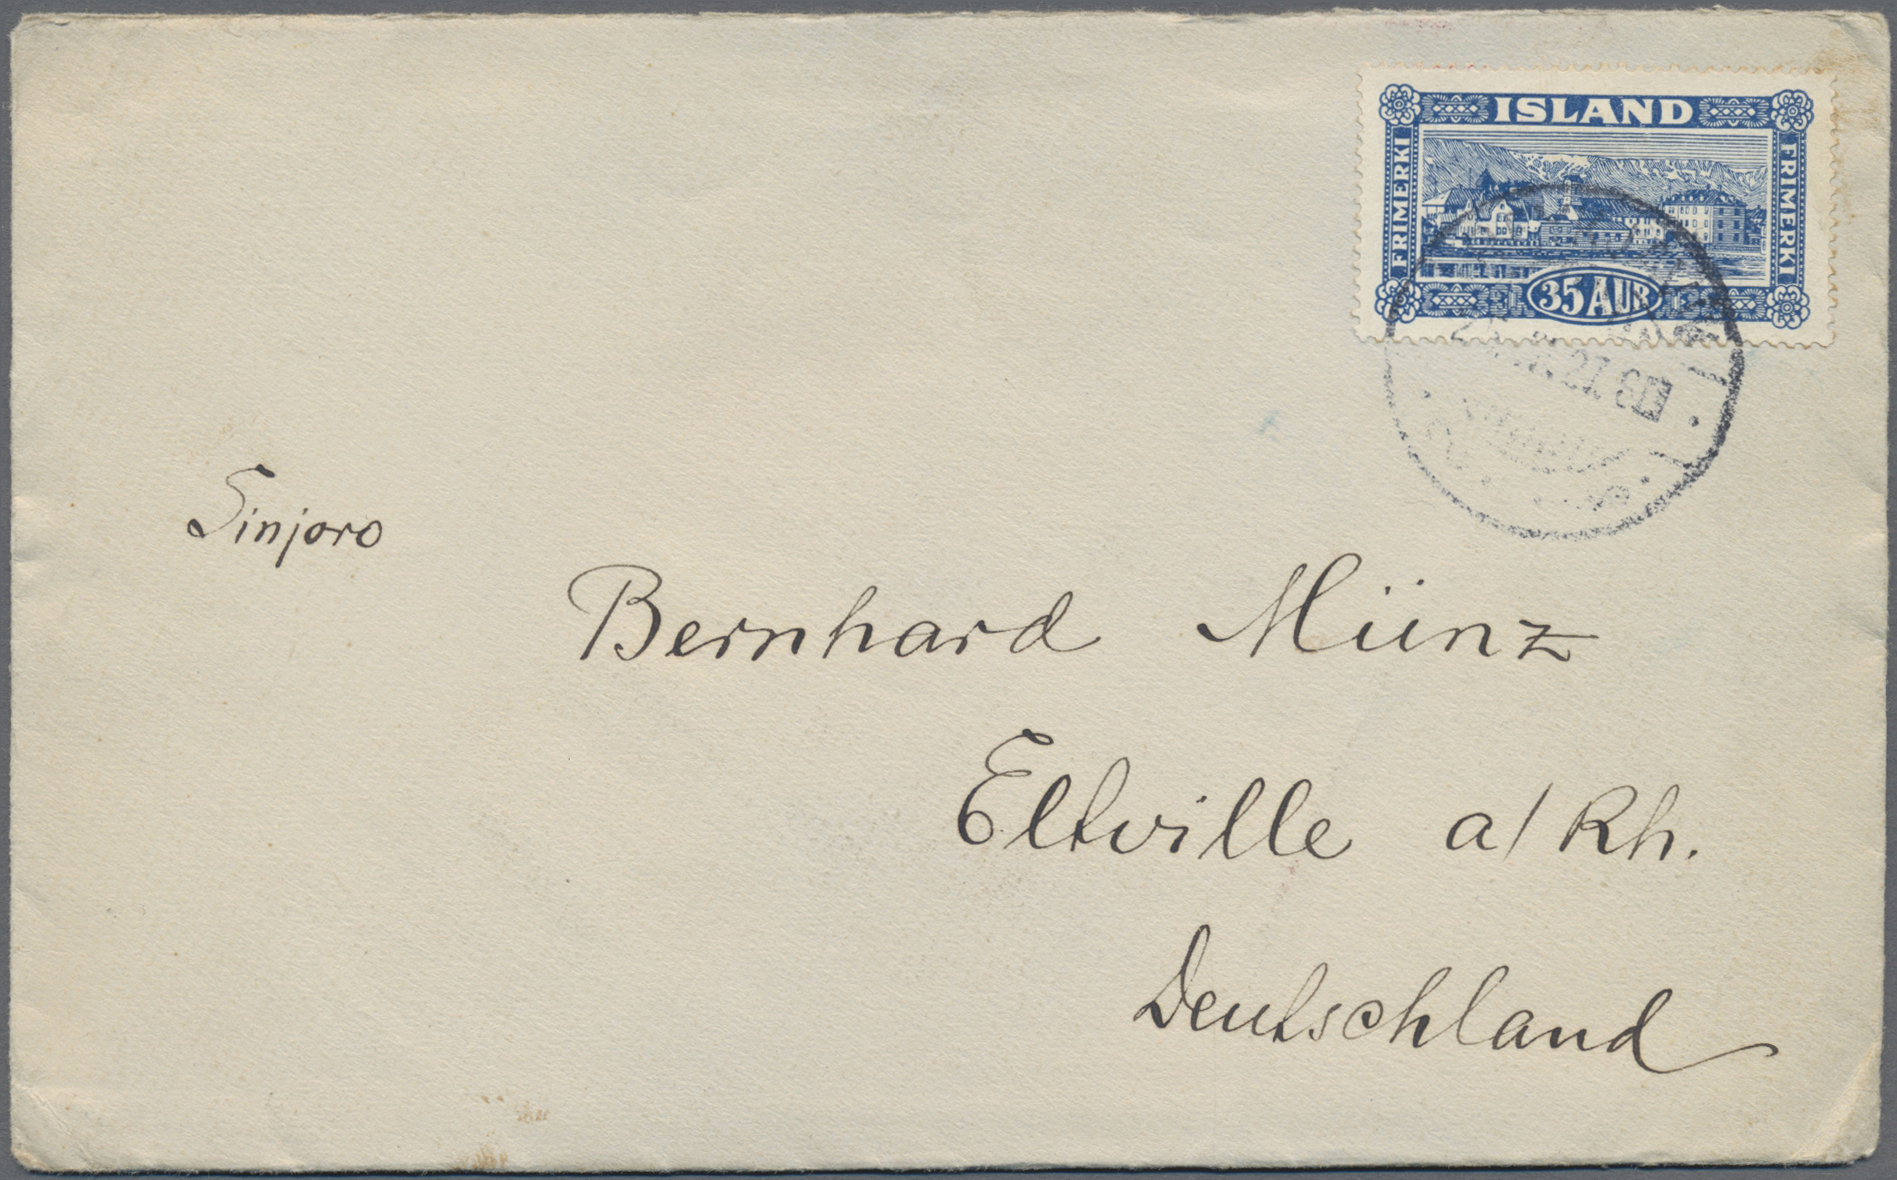 ISLAND
FRIMERKI
FRIMERKI
35 AUR
Sinjoro
Bernhard Münz
Eltville a/Rh.
Deutschland